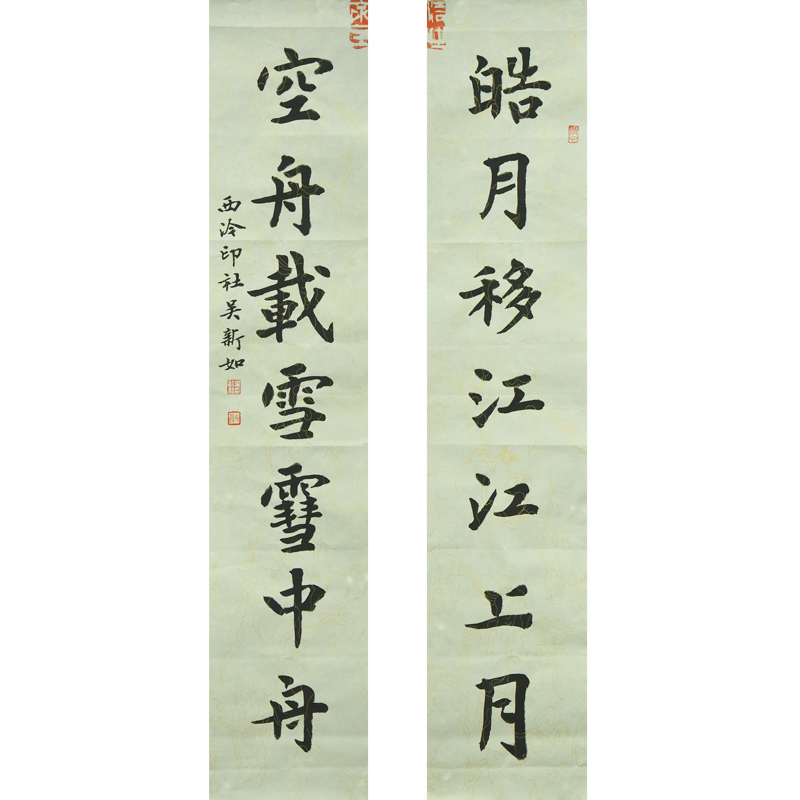 皓月移江江上月
空舟載雪雪中舟
西泠印社吴新如